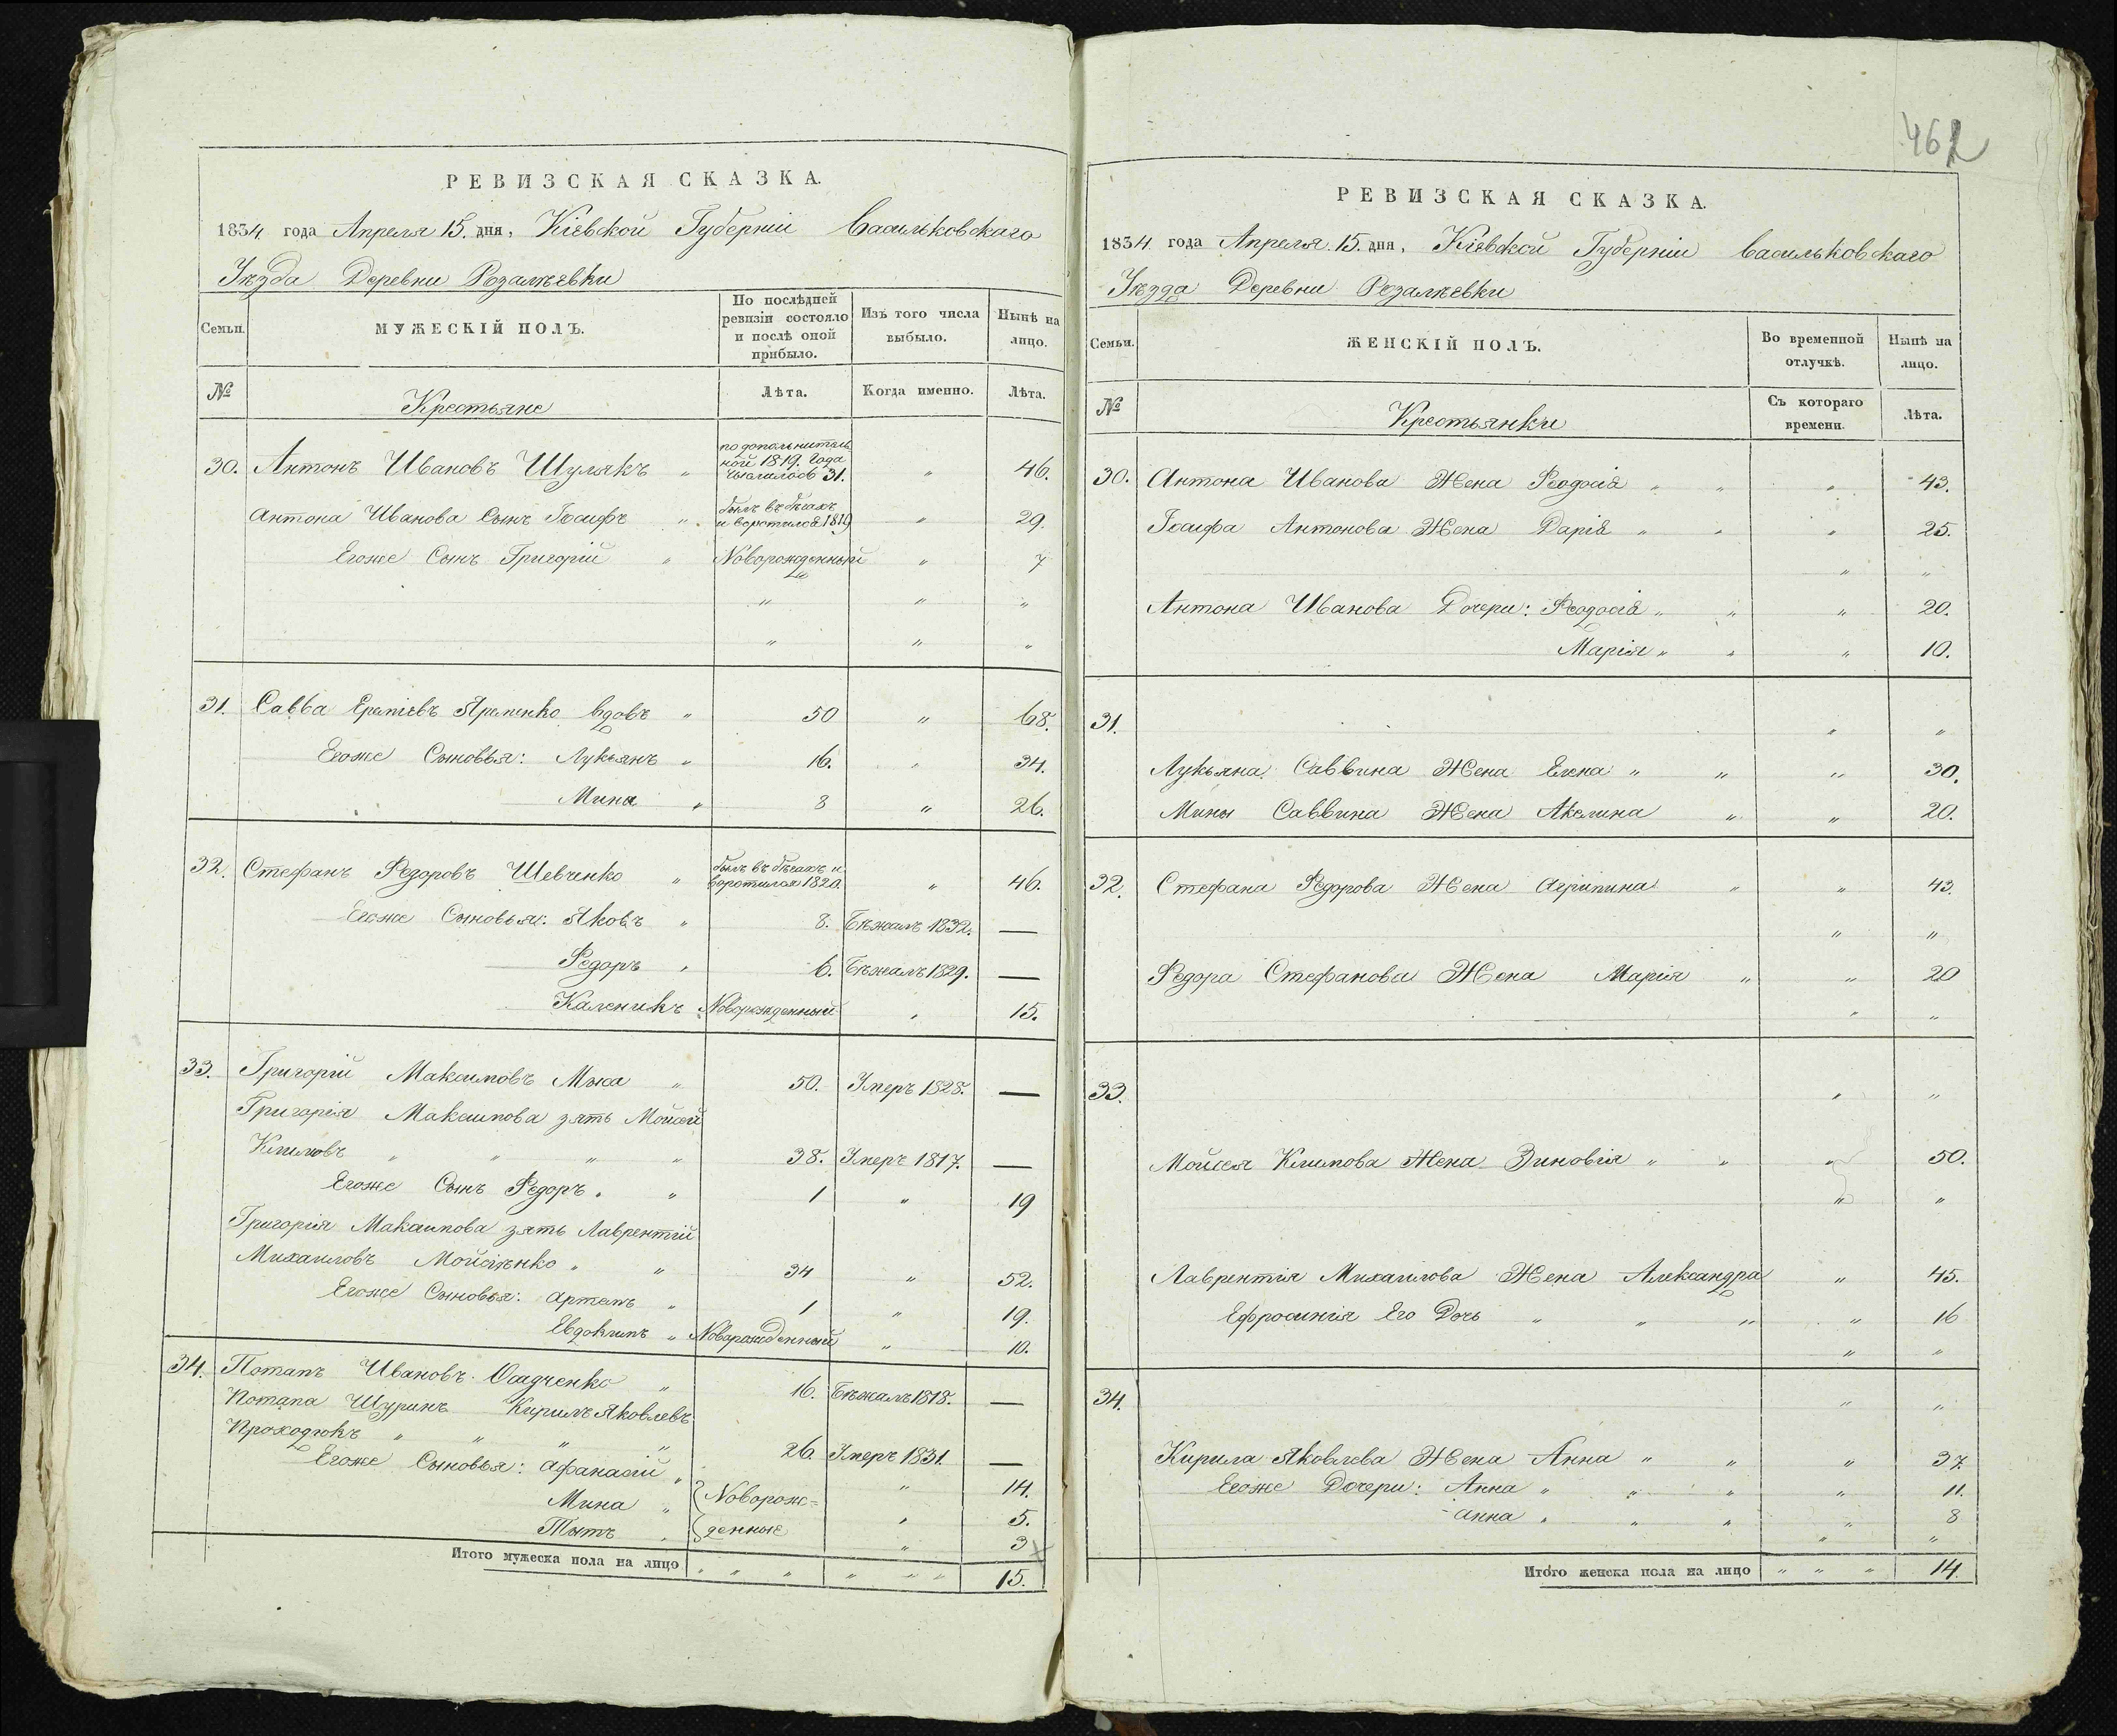 РЕВИЗСКАЯ СКАЗКА.
1834 года Апреля 15. дня, Кіевской Губерніи Васильковскаго
Уѣзда Деревни Розалѣевки
Семьи.
МУЖЕСКІЙ ПОЛЪ.
По послѣдней
ревизіи состояло
и послѣ оной
прибыло.
Изъ того числа
выбыло.
Нынѣ на
лицо.
№
Крестьяне
Лѣта.
Когда именно.
Лѣта.
30. Антонъ Ивановъ Шулякъ „ по дополнитель
ной 1819. Года
числился 31. „ 46.
Антона Иванова Сынъ Іосифъ „ былъ въ бѣгахъ
и воротился 1819 „ 29.
Егоже Сынъ Григорій „ Новорожденный „ 7
„ „ „
„ „ „
31. Савва Еремѣевъ Яременко вдовъ „ 50 „ 68.
Егоже Сыновья: Лукьянъ „ 16. „ 34.
Мина „ 8 „ 26.
32. Стефанъ Ѳедоровъ Шевченко „ былъ въ бѣгахъ и
воротился 1820. „ 46.
Егоже Сыновья: Яковъ „ 8. Бѣжалъ 1832. —
Ѳедоръ „ 6. Бѣжалъ 1829. —
Каленикъ „ Новорожденный „ 15.
33. Григорій Максимовъ Мыса „ 50. Умеръ 1828. —
Григорія Максимова зять Мойсей
Климовъ „ „ „ „ 38. Умеръ 1817. —
Егоже Сынъ Ѳедоръ „ „ 1 „ 19
Григорія Максимова зять Лаврентій
Михаиловъ Мойсѣенко „ „ 34 „ 52.
Егоже Сыновья: Артемъ „ 1 „ 19.
Евдокимъ „ Новорожденный „ 10.
34. Потапъ Ивановъ Осадченко „ 16. Бѣжалъ 1818. —
Потапа Шуринъ Кирилъ Яковлевъ
Проходюкъ „ „ „ „ 26. Умеръ 1831. —
Егоже Сыновья: Афанасій „ „ 14.
Мина „ Новорож= „ 5.
Тытъ „ денные „ 3
Итого мужеска пола на лицо „ „ „ „ „ „ 15.
462
РЕВИЗСКАЯ СКАЗКА.
1834 года Апреля 15. дня, Кіевской Губерніи Васильковскаго
Уѣзда Деревни Розалѣевки
Семьи.
ЖЕНСКІЙ ПОЛЪ.
Во временной
отлучкѣ.
Нынѣ на
лицо.
№
Крестьянки
Съ котораго
времени.
Лѣта.
30. Антона Иванова Жена Ѳеодосія „ „ „ 43.
Іосифа Антонова Жена Дарія „ „ „ 25.
„ „
Антона Иванова Дочери: Ѳеодосія „ „ „ 20.
Марія „ „ „ 10.
31. „ „
Лукьяна Саввина Жена Елена „ „ „ 30.
Мины Саввина Жена Акелина „ „ 20.
32. Стефана Ѳедорова Жена Агрипина „ „ 43.
„ „
Ѳедора Стефанова Жена Марія „ „ 20
„ „
33. „ „
Мойсея Климова Жена Зиновія „ „ „ 50.
„ „
Лаврентія Михаилова Жена Александра „ 45.
Ефросинія Его Дочь „ „ „ „ 16
„ „
34. „ „
Кирила Яковлева Жена Анна „ „ „ 37.
Егоже Дочери: Анна „ „ „ „ 11.
Анна „ „ „ „ 8
„ „
Итого женска пола на лицо „ „ „ 14.